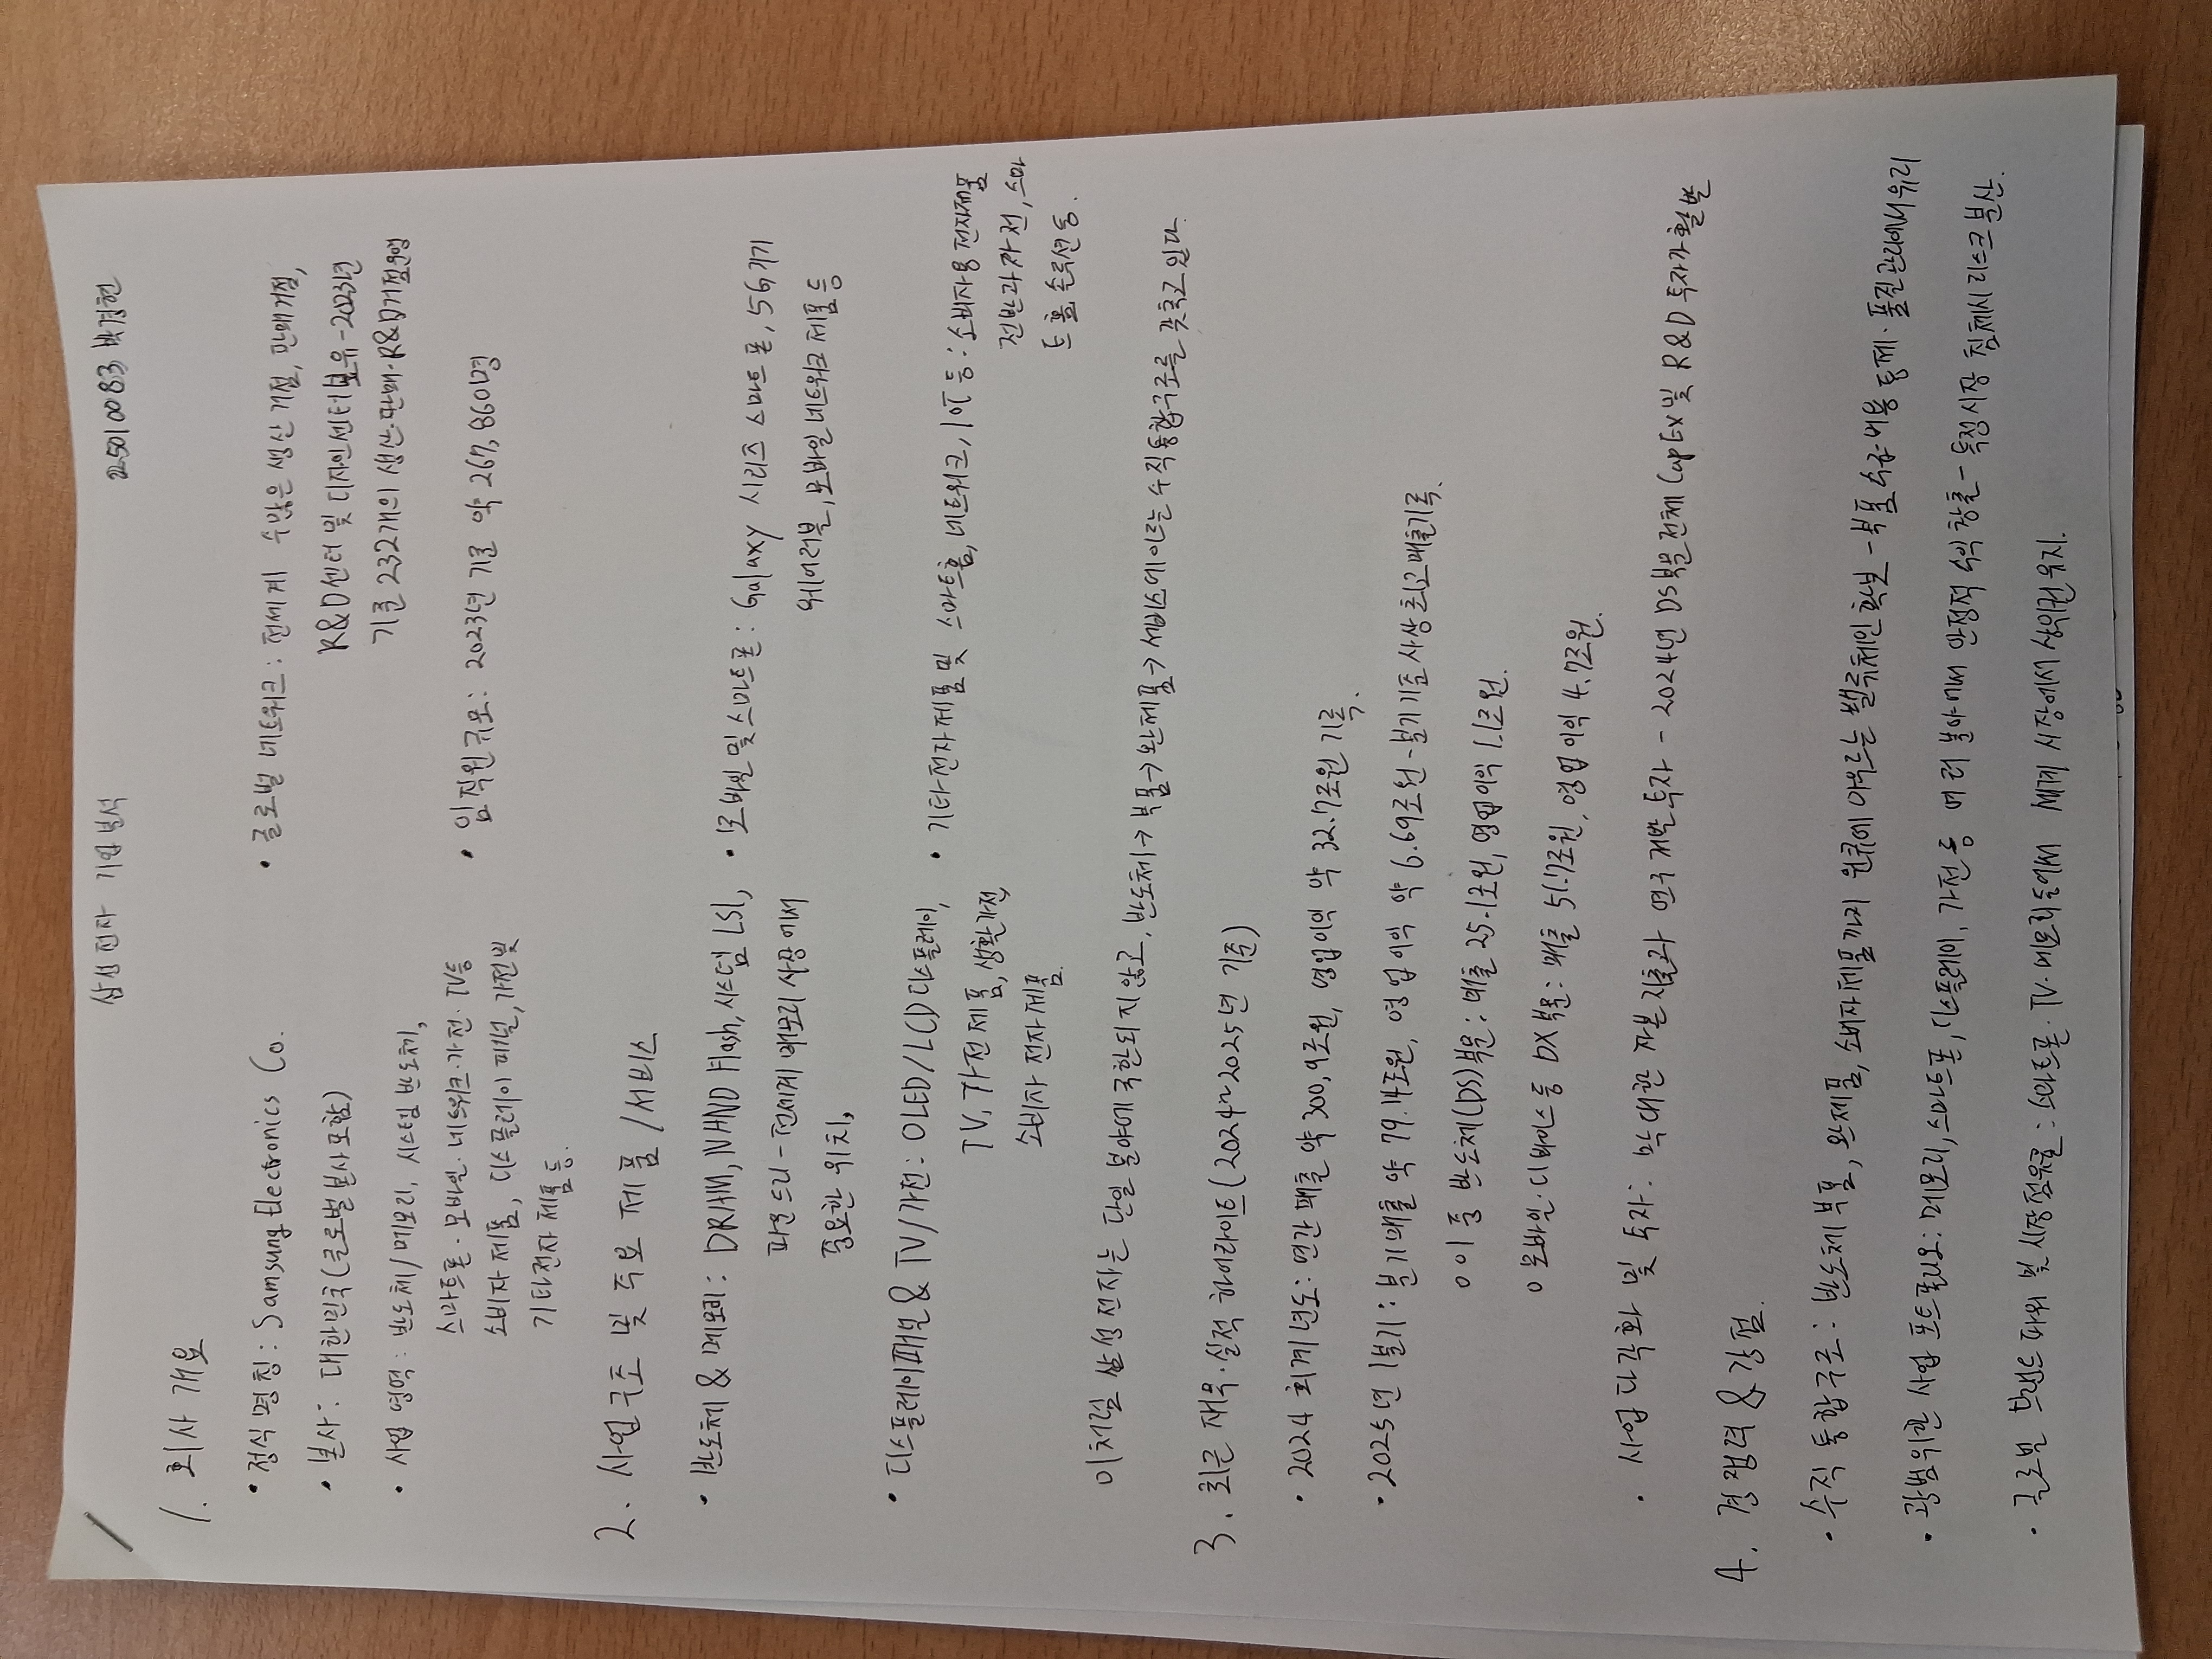 삼성전자 기업분석
25010083 박경현
1. 회사 개요
• 정식 명칭 : Samsung Electronics Co.
• 본사 : 대한민국(글로벌 본사 포함)
• 사업 영역 : 반도체/메모리, 시스템 반도체,
스마트폰·모바일·네트워크·가전·TV등
소비자 제품, 디스플레이 패널, 가전 및
기타 전자 제품 등.
• 글로벌 네트워크 : 전세계 수많은 생산 거점, 판매거점,
R&D센터 및 디자인센터 보유-2023년
기준 232개의 생산·판매·R&D거점운영
• 임직원 규모 : 2023년 기준 약 267,860명
2. 사업 구조 및 주요 제품/서비스
• 반도체 & 메모리 : DRAM, NAND Flash, 시스템 LSI,
파운드리 - 전세계 메모리 시장에서
중요한 위치,
• 모바일 및 스마트폰 : Galaxy 시리즈 스마트폰, 5G기기
웨어러블, 모바일 네트워크 제품 등
• 디스플레이패널 & TV/가전 : OLED/LCD 디스플레이,
TV, 가전제품, 생활가전
소비자 전자제품.
• 기타전자제품 및 스마트홈, 네트워크, IoT 등 : 소비자용 전자제품
전반과 가전, 스마
트홈 솔루션 등.
이처럼 삼성전자는 단일 분야에 국한되지 않고, 반도체→부품→완제품→서비스에 이르는 수직통합구조를 갖추고 있다.
3. 최근 재무·실적 하이라이트(2024~2025년 기준)
• 2024 회계년도 : 연간 매출 약 300.9조원, 영업이익 약 32.7조원 기록.
• 2025년 1분기 : 분기매출 약 79.14조원, 영업이익 약 6.69조원-분기 기준 사상 최고매출기록.
○ 이 중 반도체(DS)부문 : 매출 25.1조원, 영업이익 1.1조원.
○ 모바일·디바이스 등 DX부문 : 매출 51.7조원, 영업이익 4.7조원.
• 사업 다각화 및 투자 : 막대한 자본지출과 연구개발 투자 - 2024년 DS부문 전체 CapEx 및 R&D 투자가 활발
4. 경쟁력 & 강점.
• 수직 통합구조 : 반도체 부품, 완제품, 소비자제품까지 원류에 이르는 밸류체인 확보 - 부품 수급·비용 통제·품질관리에서 유리
• 광범위한 사업 포트폴리오 : 메모리, 스마트폰, 디스플레이, 가전 등 여러 분야에서 안정적 수익 창출 - 특정시장 침체시 리스크 분산.
• 글로벌 브랜드 파워 및 시장점유율 : 스마트폰·TV·메모리 등에서 세계 시장에서 상위권 유지.